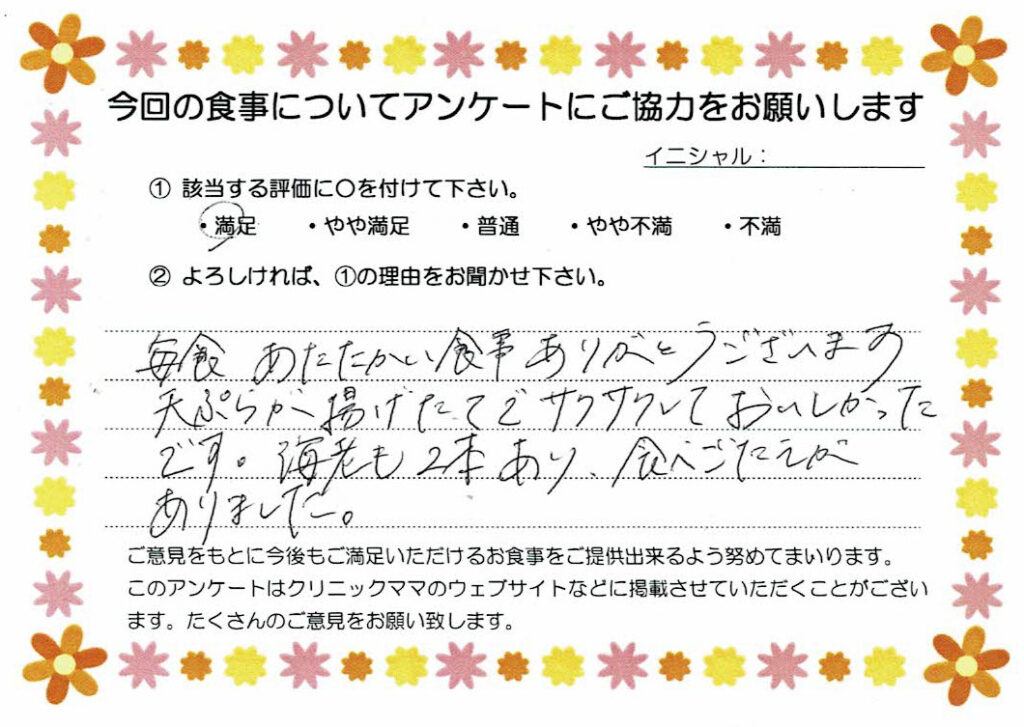 今回の食事についてアンケートにご協力をお願いします
イニシャル：
① 該当する評価に○を付けて下さい。
・満足 ・やや満足 ・普通 ・やや不満 ・不満
② よろしければ、①の理由をお聞かせ下さい。
毎食 あたたかい食事ありがとうございます
天ぷらが揚げたてでサクサクしておいしかった
です。海老も2本あり、食べごたえが
ありました。
ご意見をもとに今後もご満足いただけるお食事をご提供出来るよう努めてまいります。
このアンケートはクリニックママのウェブサイトなどに掲載させていただくことがござい
ます。たくさんのご意見をお願い致します。